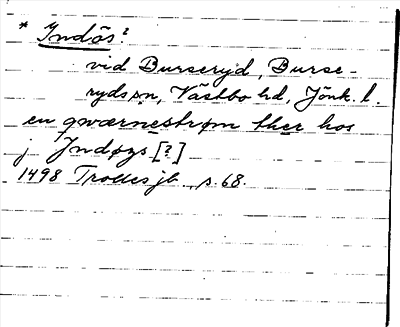 * Indös?
vid Burseryd, Burse-
rydssn, Västbo hd, Jönk. l.
en qwærnestrøm ther hos
j Jndøzs [?]
1498 Trolles jb., s. 68.